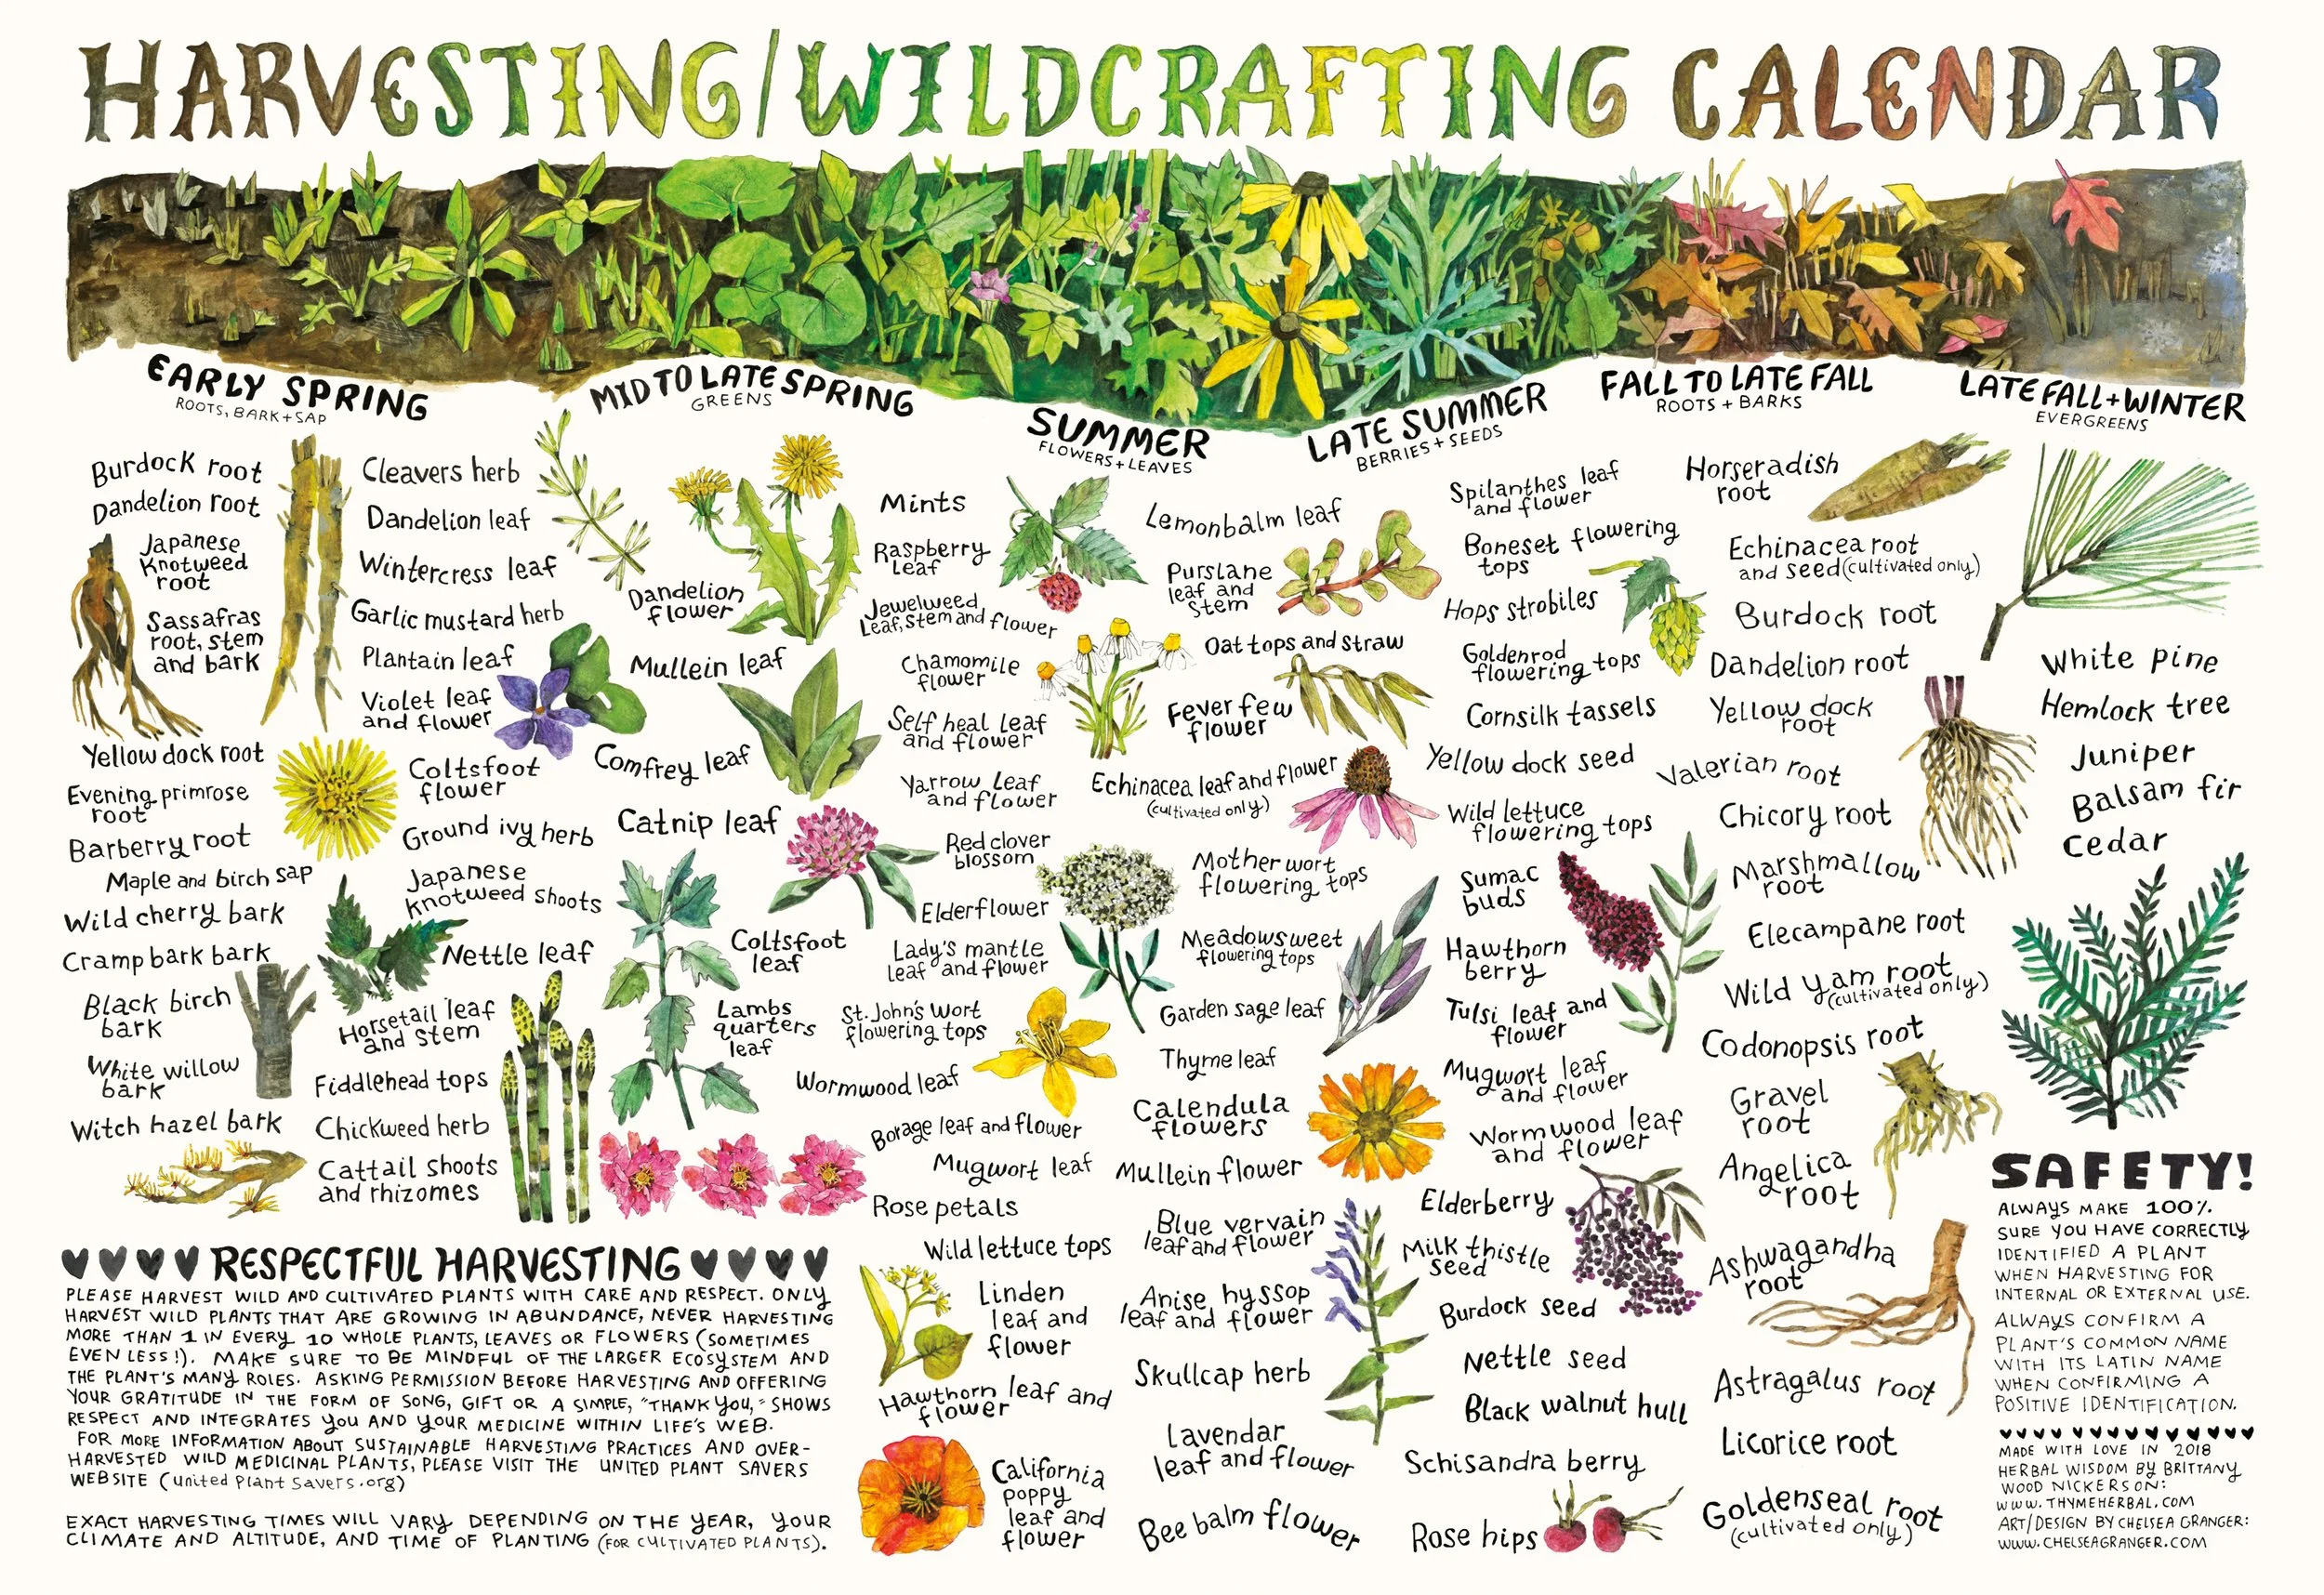 HARVESTING/WILDCRAFTING CALENDAR
EARLY SPRING
ROOTS, BARK + SAP
Burdock root
Dandelion root
Japanese
Knotweed
root
Sassafras
root, stem
and bark
Yellow dock root
Evening primrose
root
Barberry root
Maple and birch sap
Wild cherry bark
Cramp bark bark
Black birch
bark
White willow
bark
Witch hazel bark
MID TO LATE SPRING
GREENS
Cleavers herb
Dandelion leaf
Wintercress leaf
Garlic mustard herb
Plantain leaf
Violet leaf
and flower
Coltsfoot
flower
Ground ivy herb
Japanese
Knotweed shoots
Nettle leaf
Horsetail leaf
and stem
Fiddlehead tops
Chickweed herb
Cattail shoots
and rhizomes
Dandelion
flower
Mullein leaf
Comfrey leaf
Catnip leaf
Coltsfoot
leaf
Lambs
quarters
leaf
SUMMER
FLOWERS + LEAVES
Mints
Raspberry
Leaf
Jewelweed
Leaf, stem and flower
Chamomile
flower
Self heal leaf
and flower
Yarrow leaf
and flower
Red clover
blossom
Elderflower
Lady's mantle
leaf and flower
St. John's wort
flowering tops
Wormwood leaf
Borage leaf and flower
Mugwort leaf
Rose petals
Wild lettuce tops
Linden
leaf and
flower
Hawthorn leaf and
flower
California
poppy
leaf and
flower
Lemonbalm leaf
Purslane
leaf and
stem
Oat tops and straw
Fever few
flower
Echinacea leaf and flower
(cultivated only)
Mother wort
flowering tops
Meadowsweet
flowering tops
Garden sage leaf
Thyme leaf
Calendula
flowers
Mullein flower
Blue vervain
leaf and flower
Anise hyssop
leaf and flower
Skullcap herb
Lavendar
leaf and flower
Bee balm flower
LATE SUMMER
BERRIES + SEEDS
Spilanthes leaf
and flower
Boneset flowering
tops
Hops strobiles
Goldenrod
flowering tops
Cornsilk tassels
Yellow dock seed
Wild lettuce
flowering tops
Sumac
buds
Hawthorn
berry
Tulsi leaf and
flower
Mugwort leaf
and flower
Wormwood leaf
and flower
Elderberry
Milk thistle
seed
Burdock seed
Nettle seed
Black walnut hull
Schisandra berry
Rose hips
FALL TO LATE FALL
ROOTS + BARKS
Horseradish
root
Echinacea root
and seed (cultivated only)
Burdock root
Dandelion root
Yellow dock
root
Valerian root
Chicory root
Marshmallow
root
Elecampane root
Wild yam root
(cultivated only)
Codonopsis root
Gravel
root
Angelica
root
Ashwagandha
root
Astragalus root
Licorice root
Goldenseal root
(cultivated only)
LATE FALL + WINTER
EVERGREENS
White pine
Hemlock tree
Juniper
Balsam fir
Cedar
RESPECTFUL HARVESTING
PLEASE HARVEST WILD AND CULTIVATED PLANTS WITH CARE AND RESPECT. ONLY
HARVEST WILD PLANTS THAT ARE GROWING IN ABUNDANCE, NEVER HARVESTING
MORE THAN 1 IN EVERY 10 WHOLE PLANTS, LEAVES OR FLOWERS (SOMETIMES
EVEN LESS!). MAKE SURE TO BE MINDFUL OF THE LARGER ECOSYSTEM AND
THE PLANT'S MANY ROLES. ASKING PERMISSION BEFORE HARVESTING AND OFFERING
YOUR GRATITUDE IN THE FORM OF SONG, GIFT OR A SIMPLE, "THANK YOU," SHOWS
RESPECT AND INTEGRATES YOU AND YOUR MEDICINE WITHIN LIFE'S WEB.
FOR MORE INFORMATION ABOUT SUSTAINABLE HARVESTING PRACTICES AND OVER-
HARVESTED WILD MEDICINAL PLANTS, PLEASE VISIT THE UNITED PLANT SAVERS
WEBSITE (united Plant Savers.org)
EXACT HARVESTING TIMES WILL VARY DEPENDING ON THE YEAR, YOUR
CLIMATE AND ALTITUDE, AND TIME OF PLANTING (FOR CULTIVATED PLANTS).
SAFETY!
ALWAYS MAKE 100%
SURE YOU HAVE CORRECTLY
IDENTIFIED A PLANT
WHEN HARVESTING FOR
INTERNAL OR EXTERNAL USE.
ALWAYS CONFIRM A
PLANT'S COMMON NAME
WITH ITS LATIN NAME
WHEN CONFIRMING A
POSITIVE IDENTIFICATION.
MADE WITH LOVE IN 2018
HERBAL WISDOM BY BRITTANY
WOOD NICKERSON:
WWW.THYMEHERBAL.COM
ART/DESIGN BY CHELSEA GRANGER:
WWW.CHELSEAGRANGER.COM